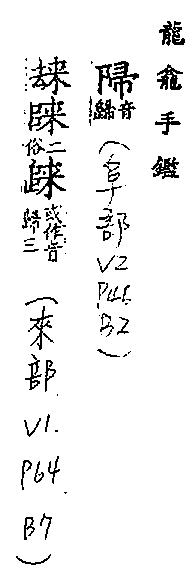 龍龕手鑑
𨹔音歸(阜部 V2 P44 B2)
二俗 或作 音歸三(來部. V1. P64. B7)